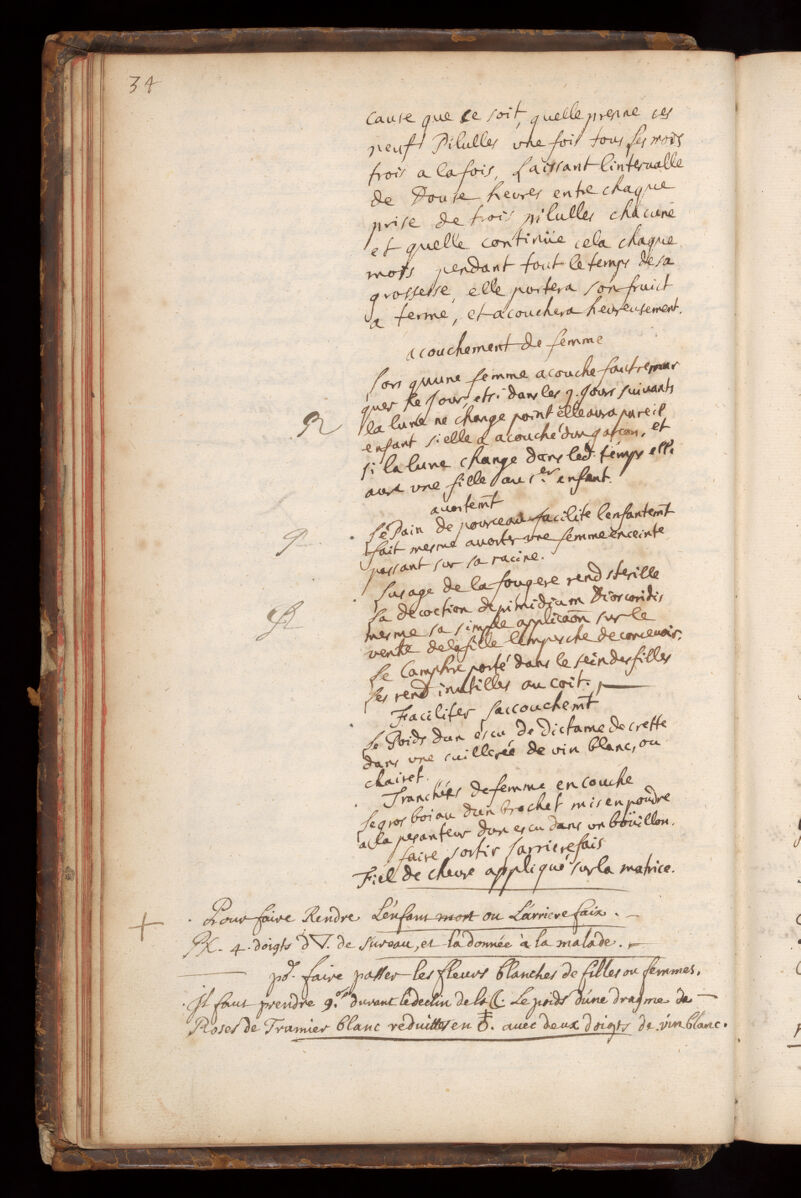 34
cause que ce soit, quelle prenne ces
neuf Pilulles vne fois tous les mois
trois a la fois, Laissant lintervalle
de Douse heures entre chaque
prise de trois pilulles chacune
et quelle continüe cela chaque
mois pendant tout le temps de sa
grossesse, elle portera son fruict
a terme, et acouchera heureusement.
acouchement de femme
Lors quune femme acouche faut remar
quer le Jour et si dans les 9. Jours suivants
la lune ne change point elle aura pareil
enfant si elle a acouché dun garcon, et
si la lune change dans led. temps elle
aura vne fille au 1.er enfant.
avortemt
Le Pain de pourceau facilite lenfantemt
fait mesme avorter vne femme enceinte
passant sur sa racine.
Lusage de la fougere rend sterille
La decoction depimidium Dioscoridis
mesme sa simple applicaon sur le
ventre de la fille lempesche de concevoir.
Le Camphre porté dans le sein des filles
les rend inutilles au coit.
Faciliter laccouchemt
Le Poids dun escu de Dictame de crette
dans vne cuillerée de vin blanc, ou
clairet.
Tranchées de femme en couche
Le gros boiau dun brochet mis en poudre
a la pesanteur dun escu dans un boüillon.
faire sortir larrierefais
Fiel de chevre appliqué sur la matrice.
+ Pour faire Rendre L'enfant mort ou L'arriere faix.
℞. 4. doigts d'▽. de sureau, et la donnée à la malade.
pr. faire passer les fleurs blanches de filles ou femmes.
Il faut prendre 9. durant le declin de la ☾. Le poids d'une dragme de
Roses de Tramier blanc reduittes en . avec deux doigts de vin blanc.